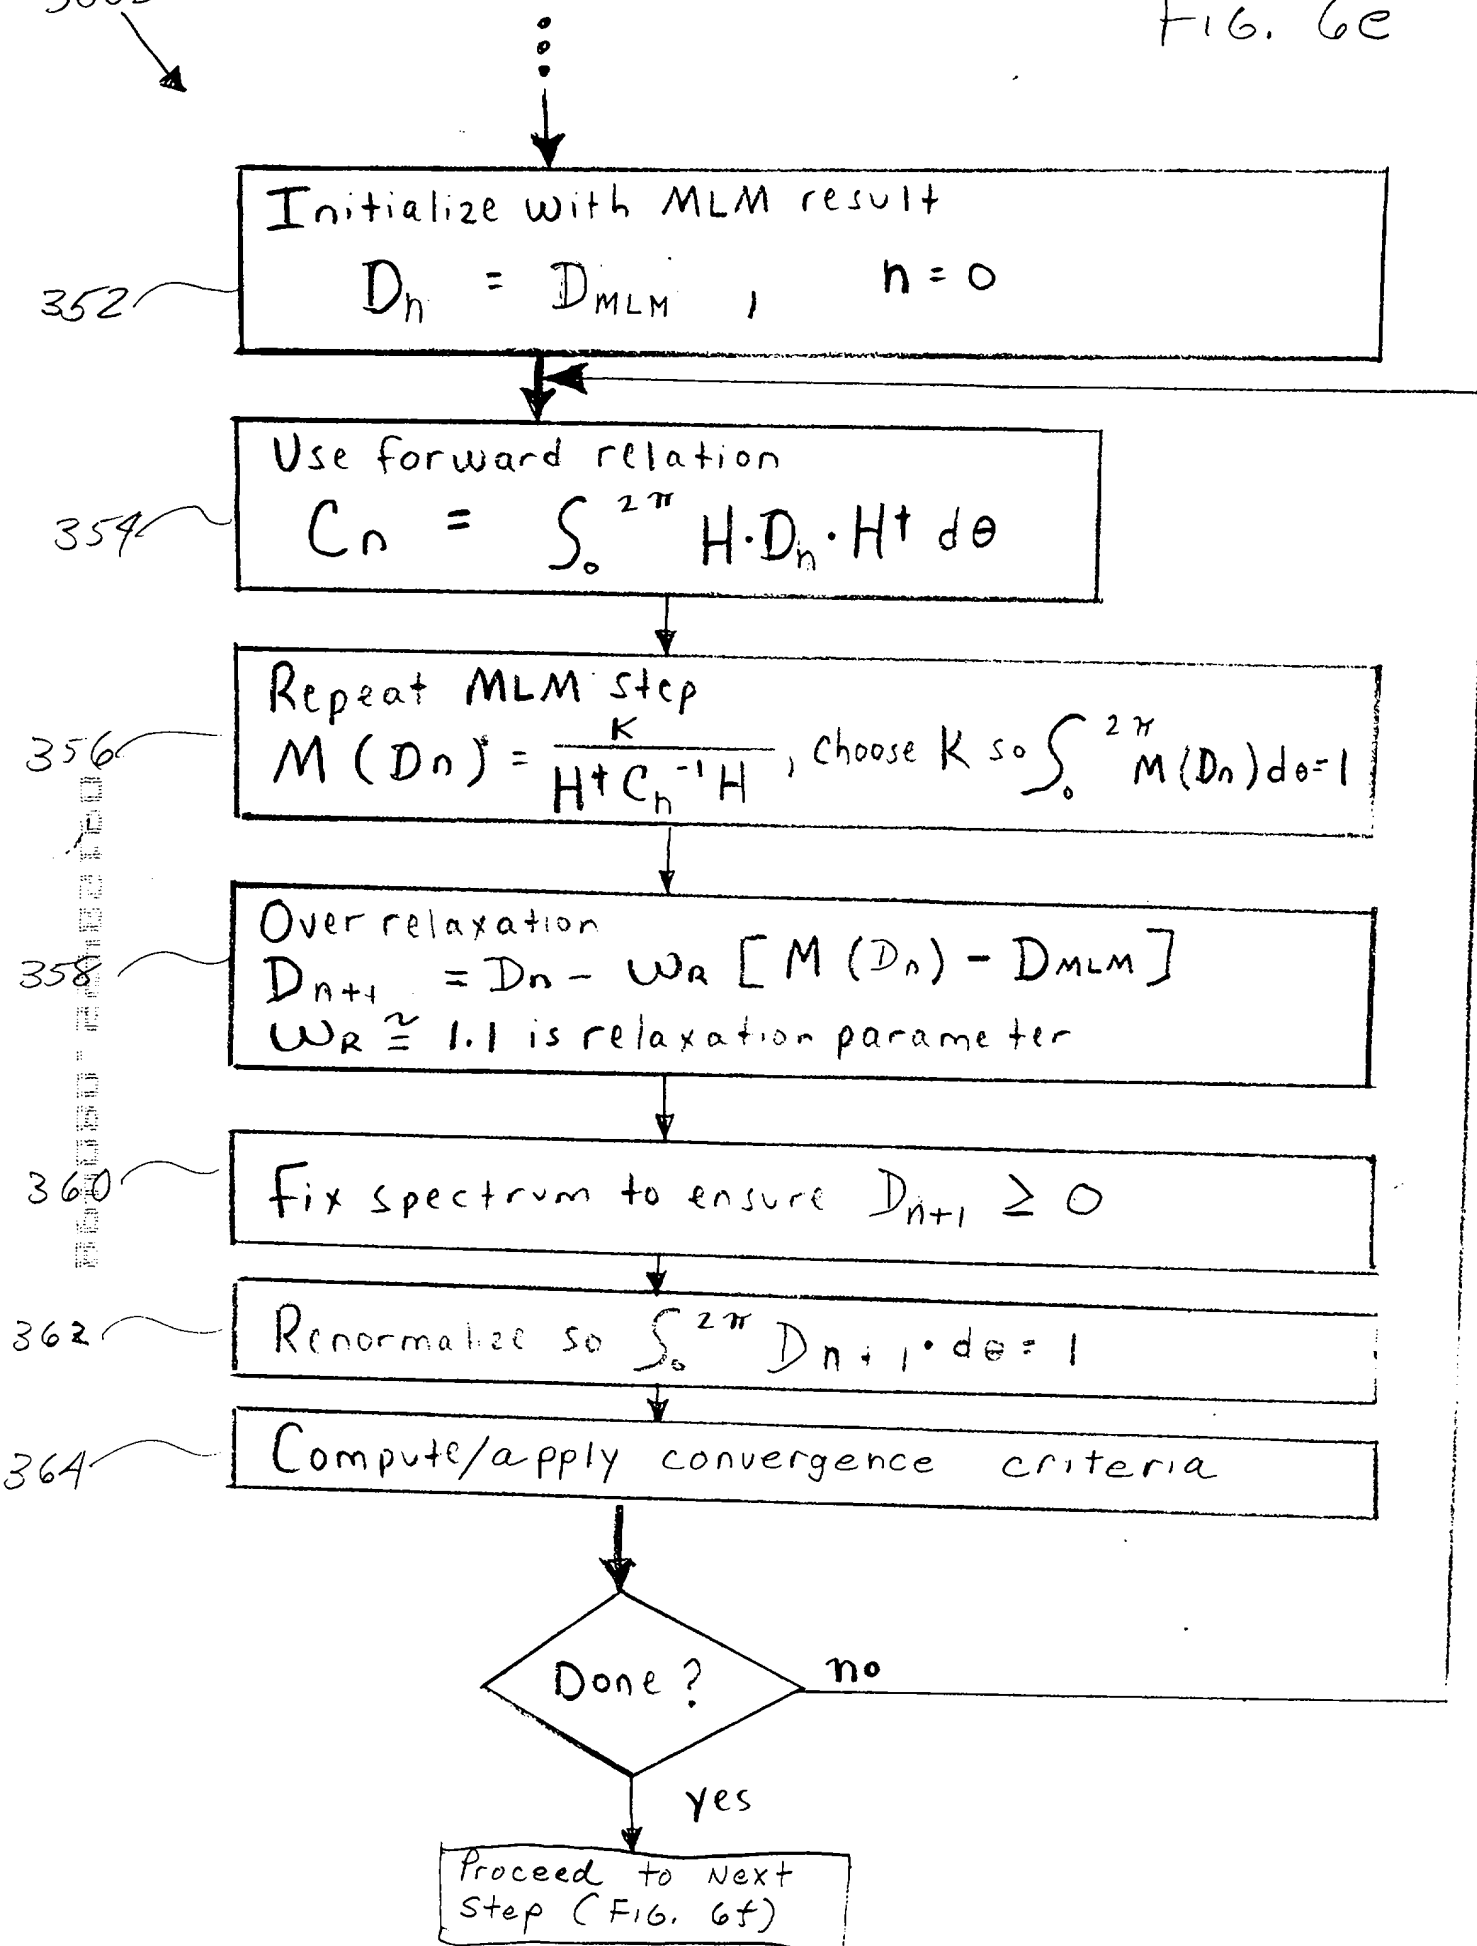 FIG. 6e
Initialize with MLM result
Dn = DMLM , n = 0
352
Use forward relation
Cn = ∫₀ ²π H·Dn·H† dθ
354
Repeat MLM step
M (Dn) = K / H† Cn⁻¹ H , choose K so ∫₀ ²π M (Dn) dθ = 1
356
Over relaxation
Dn+1 = Dn - ωR [ M (Dn) - DMLM ]
358
ωR ≅ 1.1 is relaxation parameter
Fix spectrum to ensure Dn+1 ≥ 0
360
Renormalize so ∫₀ ²π Dn+1 · dθ = 1
362
Compute/apply convergence criteria
364
Done ?
no
yes
Proceed to Next
Step (FIG. 6f)